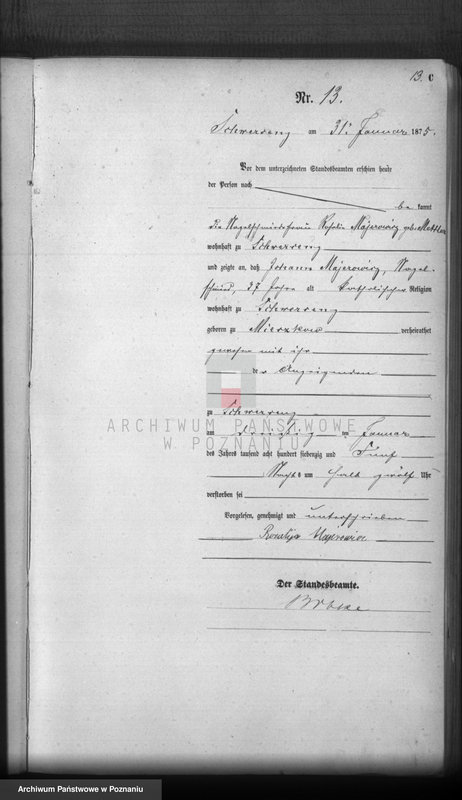 13. C
Nr. 13.
Schwersenz am 31. Januar 1875.
Vor dem unterzeichneten Standesbeamten erschien heute
der Person nach
be kannt
die Nagelschmiedefrau Rosalie Majerowicz geb.
wohnhaft zu Schwersenz
und zeigte an, daß Johann Majerowicz, Nagel-
schmied, 37 Jahre alt katholischer Religion
wohnhaft zu Schwersenz
geboren zu Mieszkow verheirathet
gewesen mit ihr
der Anzeigenden
zu Schwersenz
ARCHIWUM PAŃSTWOWE
W POZNANIU
am dreißig ten Januar
des Jahres tausend acht hundert siebenzig und Fünf
Nachts um halb zwölf Uhr
verstorben sei
Vorgelesen, genehmigt und unterschrieben
Rozalija Majerowicz
Der Standesbeamte.
Archiwum Państwowe w Poznaniu